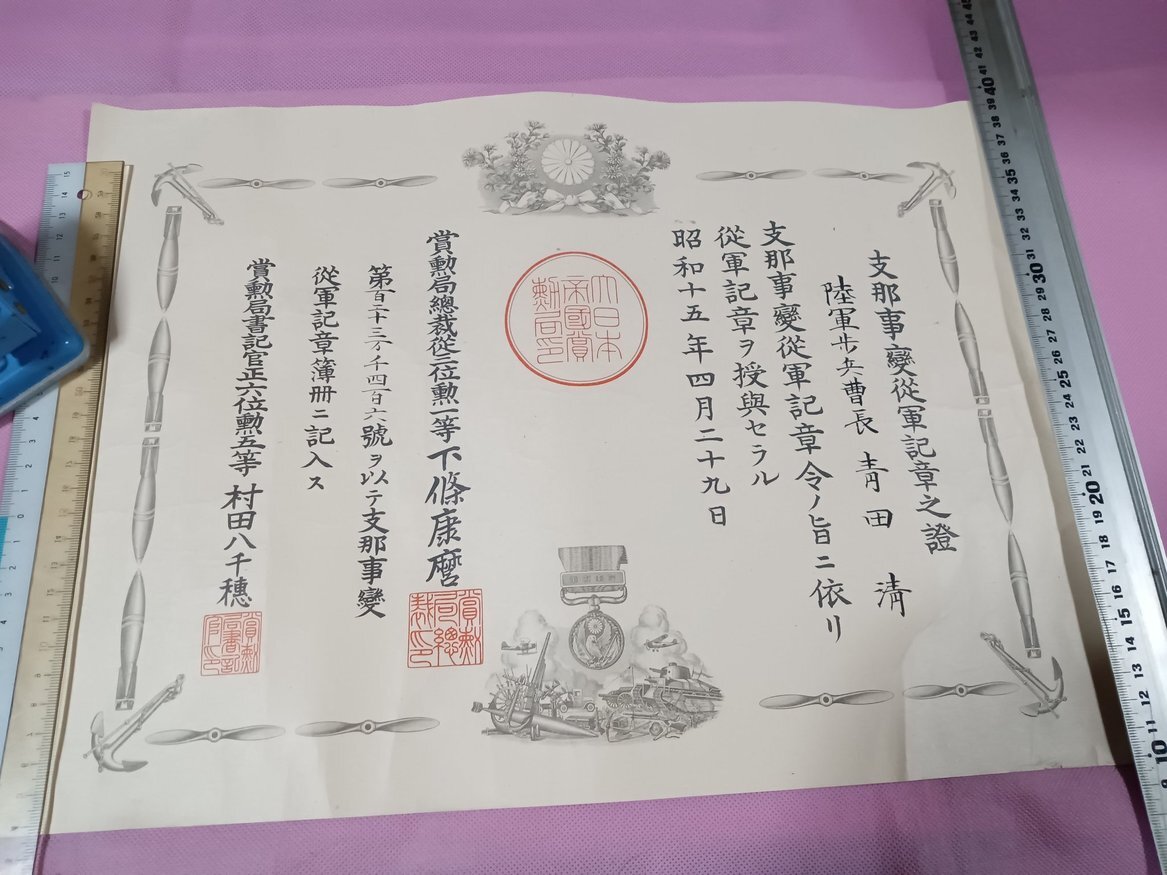 支那事變從軍記章之證
陸軍步兵曹長 青田 清
支那事變從軍記章令ノ旨ニ依リ
從軍記章ヲ授與セラル
昭和十五年四月二十九日
大日本
帝國賞
勲局印
賞勲局總裁從三位勲一等下條康麿
賞勲
局總
裁印
第百二十三万千四百六號ヲ以テ支那事變
從軍記章簿冊ニ記入ス
賞勲局書記官正六位勲五等村田八千穗
賞勲
局書記
官印